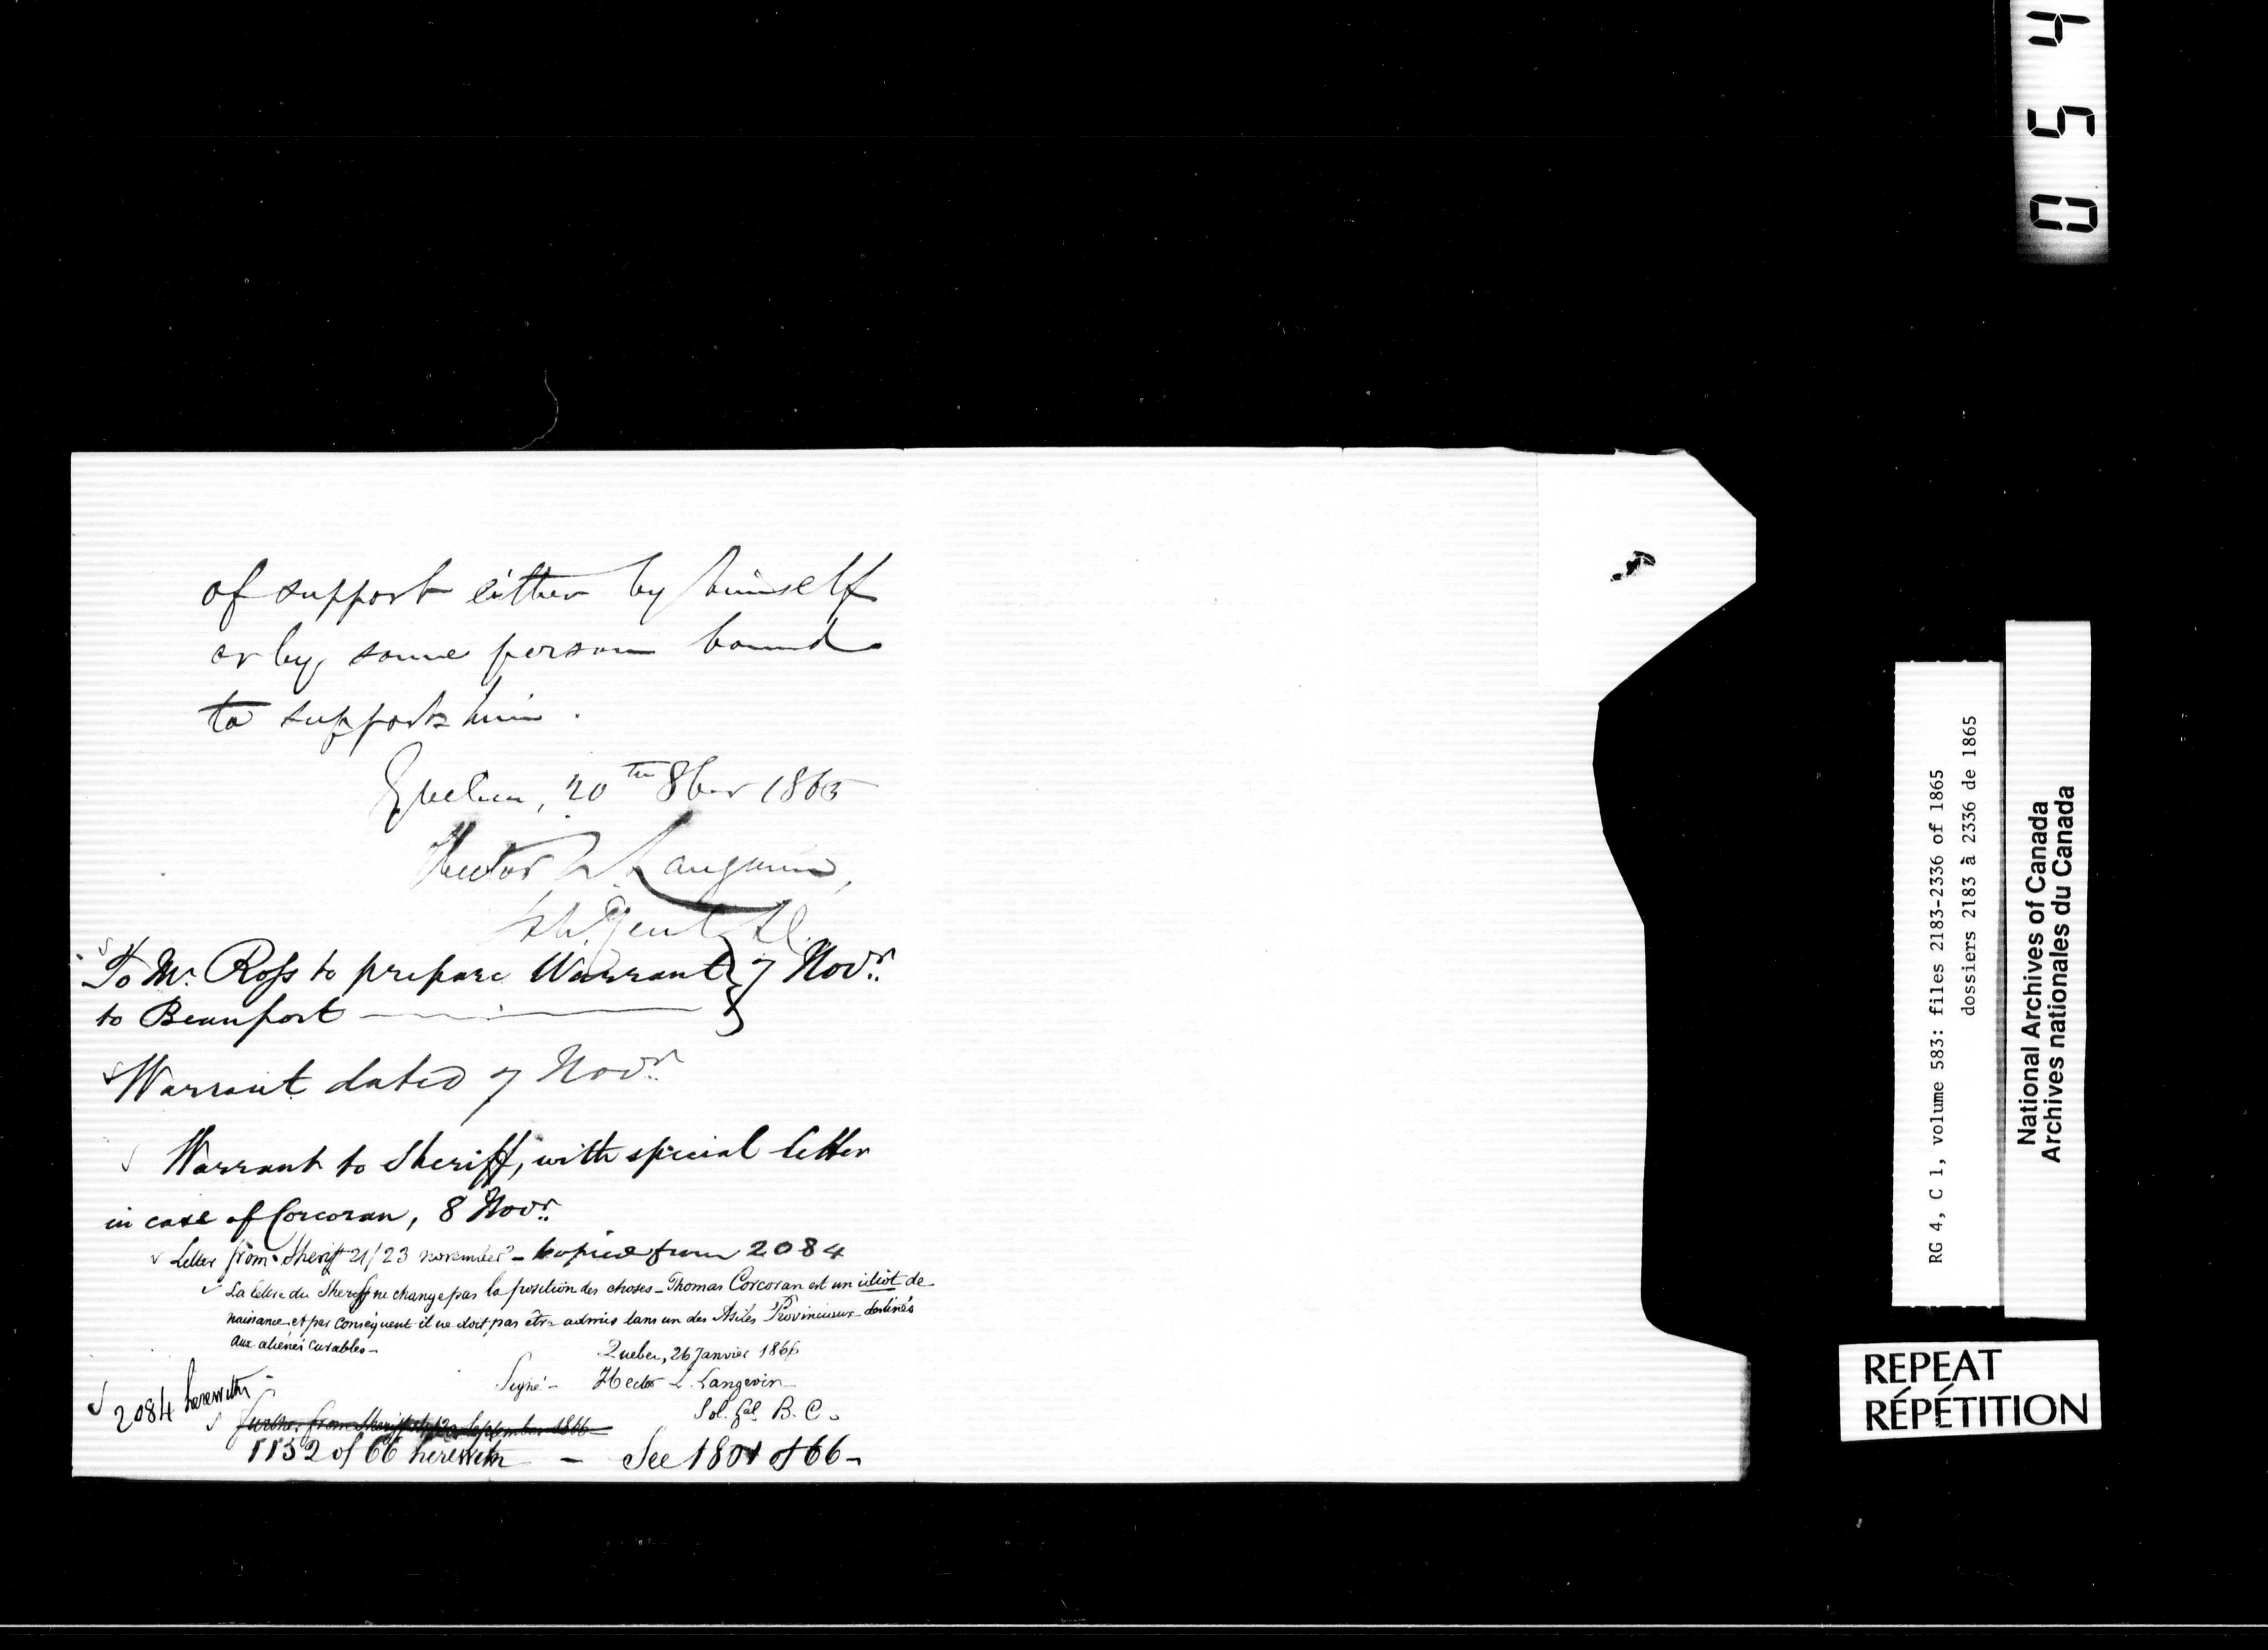 of support either by himself
or by some person bound
to support him.
Quebec, 20th 8ber 1865
Hector L. Langevin,
Sol. Genl. L.C.
To Mr. Ross to prepare Warrant } 7 Novr.
to Beauport
Warrant dated 7 Novr.
Warrant to Sheriff, with special letter
in case of Corcoran, 8 Novr.
Letter from Sheriff 21/23 november - copied from 2084
La lettre du Sheriff ne change pas la position des choses - Thomas Corcoran est un idiot de
naissance et par conséquent il ne doit pas être admis dans un des Asiles Provinciaux destinés
aux aliénés curables -
Quebec, 26 Janvier 1866
Signé - Hector L. Langevin
Sol. Gal. B. C.
2084 herewith -
further from Sheriff September 1866
1152 of 66 herewith - See 1801 of 66 -
RG 4, C 1, volume 583: files 2183-2336 of 1865
dossiers 2183 à 2336 de 1865
National Archives of Canada
Archives nationales du Canada
REPEAT
RÉPÉTITION
054